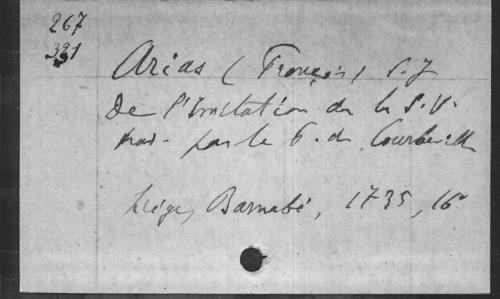 267
321
Arias (François) S. J
De l'Imitation de la S. V.
trad. par le P. de Courbeville
Liége, Barnabé, 1735, 16°